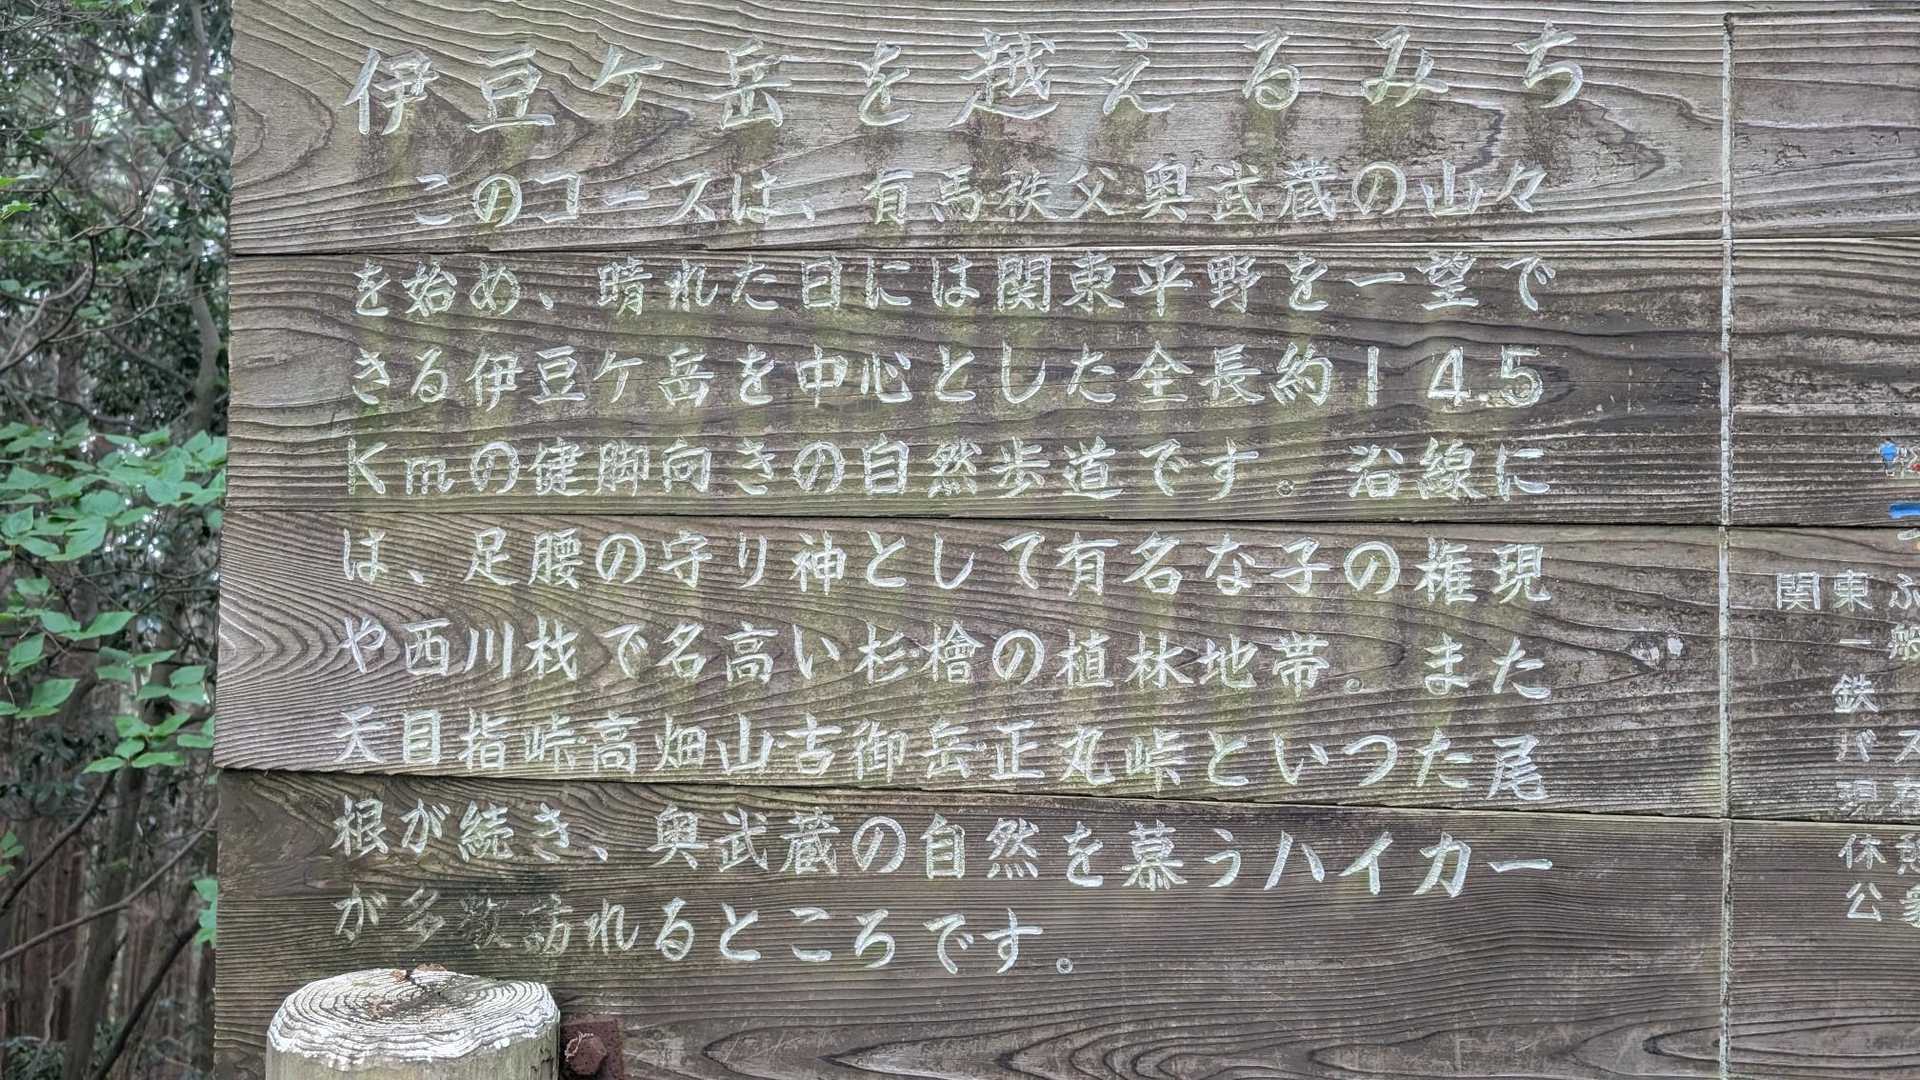 伊豆ケ岳を越えるみち
このコースは、有馬秩父奥武蔵の山々
を始め、晴れた日には関東平野を一望で
きる伊豆ケ岳を中心とした全長約14.5
Kmの健脚向きの自然歩道です。沿線に
は、足腰の守り神として有名な子の権現
や西川材で名高い杉檜の植林地帯。また
天目指峠・高畑山・古御岳・正丸峠といつた尾
根が続き、奥武蔵の自然を慕うハイカー
が多数訪れるところです。
関東ふ
一般
鉄
バス
現在
休憩
公衆